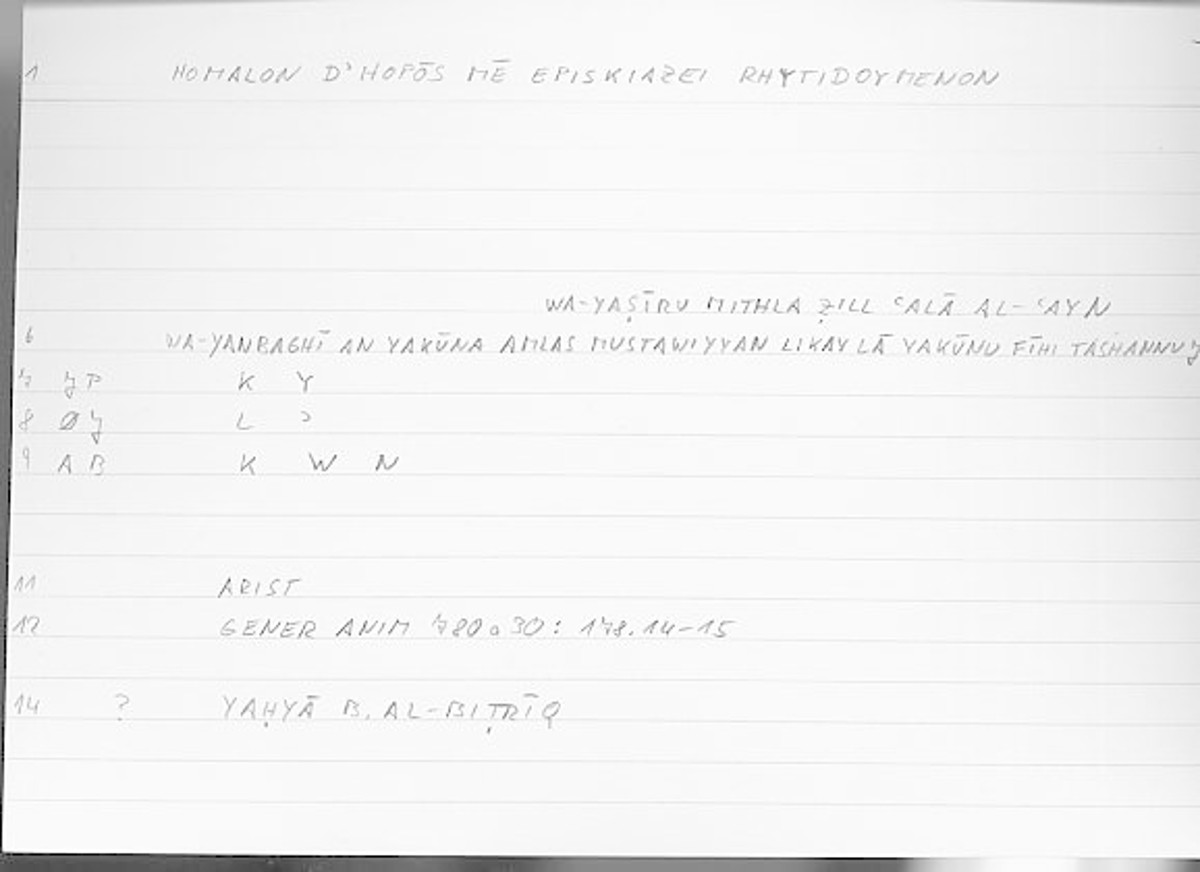 1 HOMALON D'HOPŌS MĒ EPISKIAZEI RHYTIDOYMENON
WA-YAṢĪRU MITHLA ẒILL ʿALĀ AL-ʿAYN
6 WA-YANBAGHĪ AN YAKŪNA AMLAS MUSTAWIYYAN LIKAY LĀ YAKŪNU FĪHI
7 P K Y
8 Ø L ʾ
9 A B K W N
11 ARIST
12 GENER ANIM 780a30: 178.14-15
14 ? YAḤYĀ B. AL-BIṬRĪQ